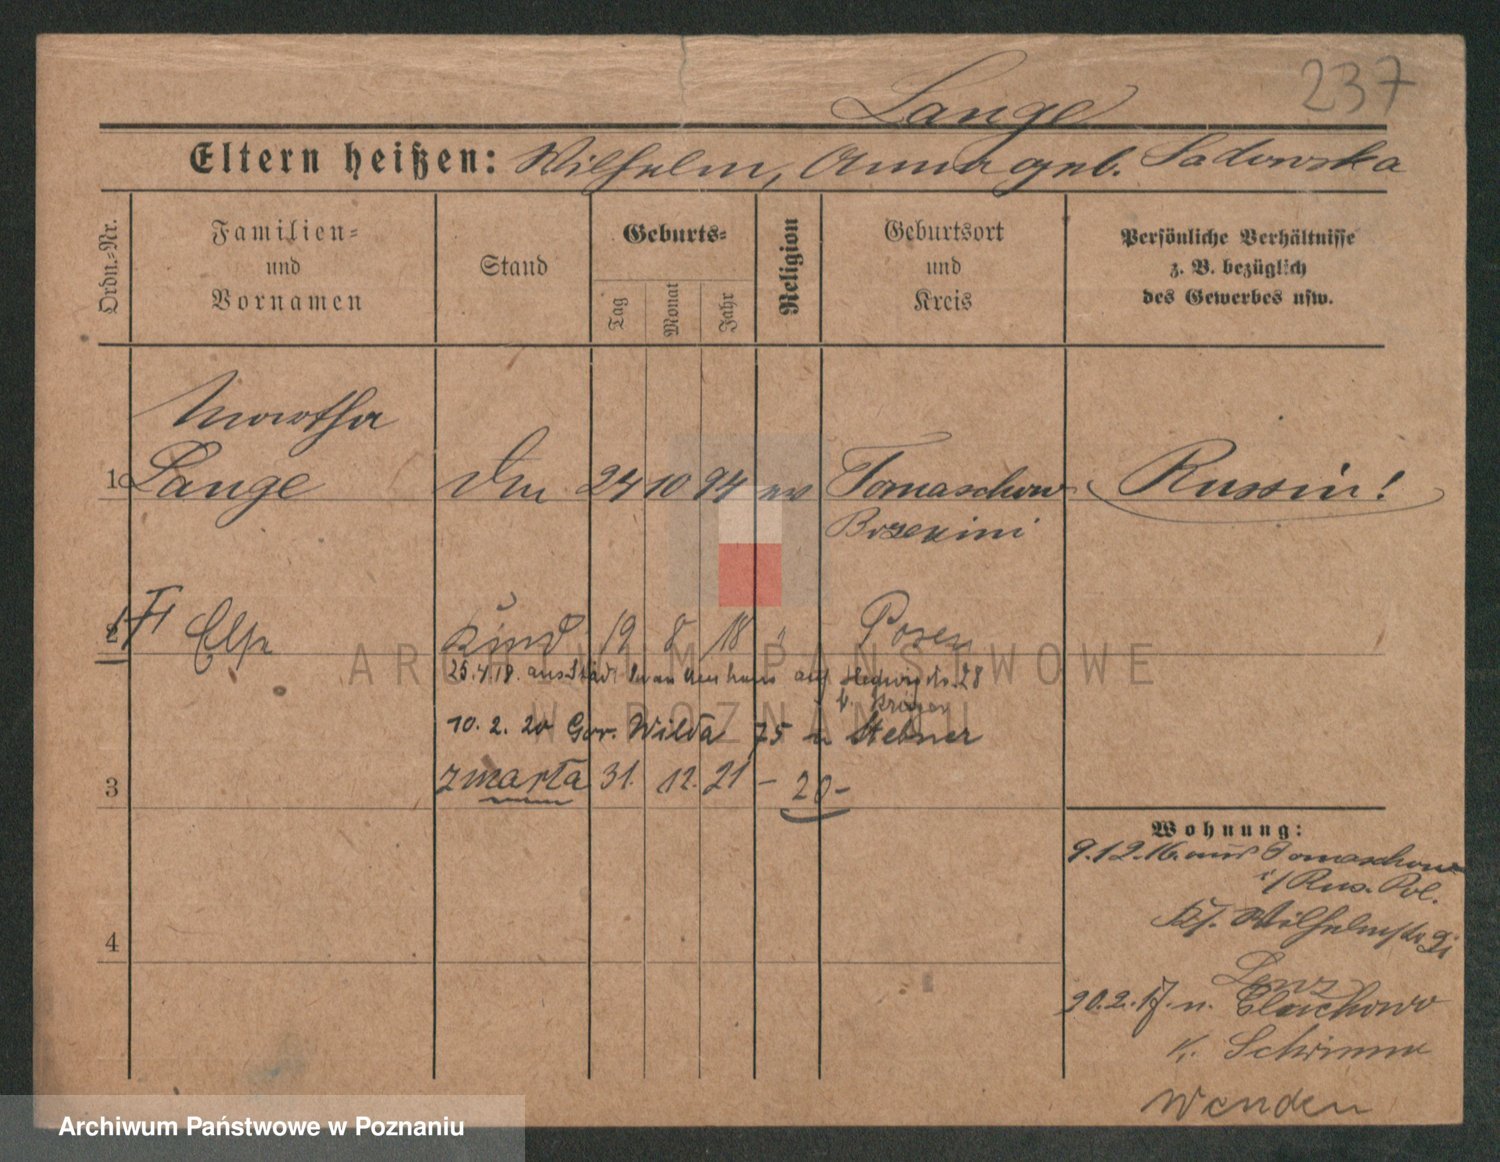 237
Lange
Eltern heißen: Wilhelm, Anna geb. Sadowska
Ordn.-Nr.
Familien=
und
Vornamen
Stand
Geburts=
Tag
Monat
Jahr
Religion
Geburtsort
und
Kreis
Persönliche Verhältnisse
z. B. bezüglich
des Gewerbes usw.
Martha
1 Lange 24 10 94 ev Tomaschow Russin!
2 Kind 12 8 18 Posen
25.4.18. aus Städt Krankenhaus auf Hedwigstr. 28
10. 2. 20 Gor. Wilda 75 Stebner
3 zmarta 31. 12. 21 – 20 –
4
Wohnung:
9.12.16. aus Tomaschow
i/ Rus. Pol.
Wilhelmstr
20.2.17. n.
Schrimm
ARCHIWUM PAŃSTWOWE
W POZNANIU
Archiwum Państwowe w Poznaniu